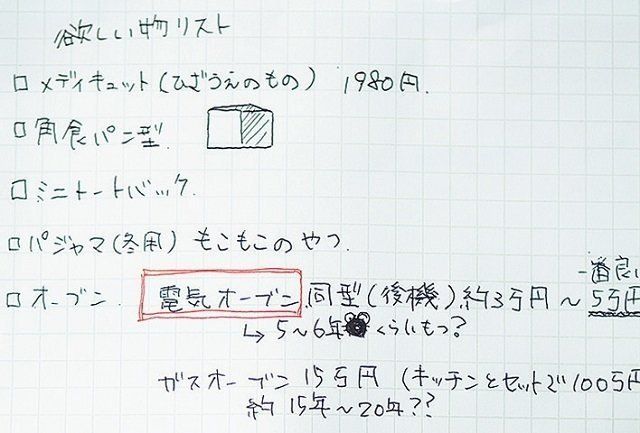 欲しい物リスト
□ メディキュット(ひざうえのもの) 1980円.
□ 角食パン型.
□ ミニトートバック.
□ パジャマ(冬用) もこもこのやつ.
一番良い
□ オーブン. 電気オーブン.同型(後機)約3万円～5万円
↳ 5～6年くらいもつ?
ガスオーブン 15万円 (キッチンとセットで100万円
約15年～20年??